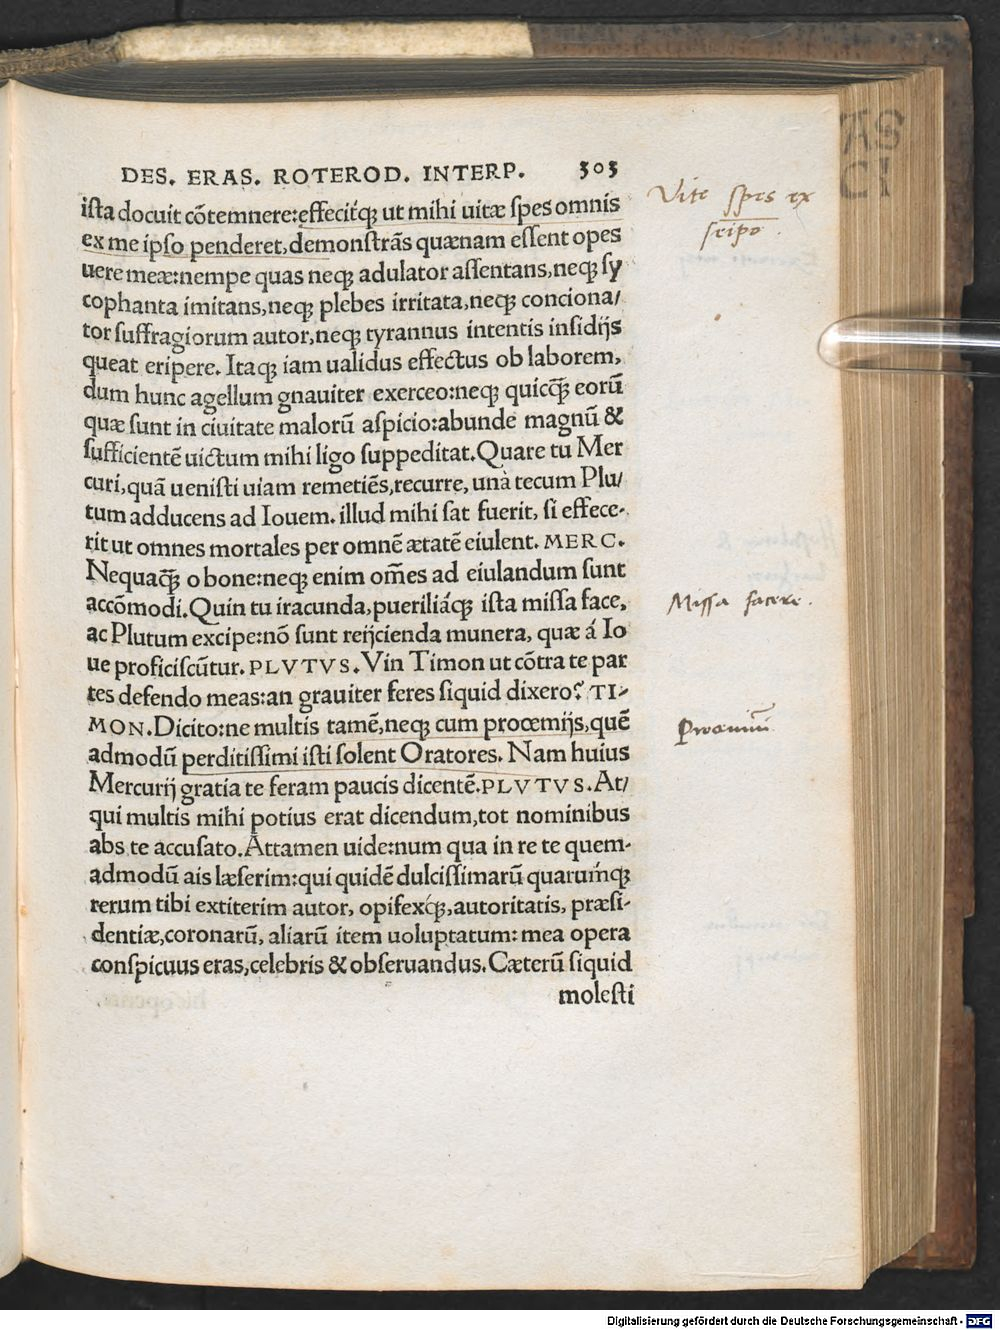 DES. ERAS. ROTEROD. INTERP. 303
ista docuit cõtemnere:effecitq́ꝫ ut mihi uitæ spes omnis
ex me ipso penderet,demonstrãs quænam essent opes
uere meæ:nempe quas neqꝫ adulator assentans,neqꝫ sy
cophanta imitans,neqꝫ plebes irritata,neqꝫ conciona/
tor suffragiorum autor,neqꝫ tyrannus intentis insidijs
queat eripere. Itaqꝫ iam ualidus effectus ob laborem,
dum hunc agellum gnauiter exerceo:neqꝫ quicq̃ꝫ eorũ
quæ sunt in ciuitate malorũ aspicio:abunde magnũ &
sufficientẽ uictum mihi ligo suppeditat.Quare tu Mer
curi,quã uenisti uiam remetiẽs,recurre, unà tecum Plu/
tum adducens ad Iouem. illud mihi sat fuerit, si effece-
rit ut omnes mortales per omnẽ ætatẽ eiulent. MERC.
Nequaq̃ꝫ o bone:neqꝫ enim om̃es ad eiulandum sunt
accõmodi.Quin tu iracunda,pueriliáqꝫ ista missa face,
ac Plutum excipe:nõ sunt reijcienda munera, quæ á Io
ue proficiscũtur. PLVTVS. Vin Timon ut cõtra te par
tes defendo meas:an grauiter feres siquid dixero? TI-
MON.Dicito:ne multis tamẽ,neqꝫ cum prooemijs,quẽ
admodũ perditissimi isti solent Oratores. Nam huius
Mercurij gratia te feram paucis dicentẽ.PLVTVS.At/
qui multis mihi potius erat dicendum,tot nominibus
abs te accusato.Attamen uide:num qua in re te quem-
admodũ ais læserim:qui quidẽ dulcissimarũ quarumq́ꝫ
rerum tibi extiterim autor, opifexq́ꝫ,autoritatis, præsi-
dentiæ,coronarũ, aliarũ item uoluptatum: mea opera
conspicuus eras,celebris & obseruandus. Cæterũ siquid
molesti
Vite spes ex
seipo.
Missa facere.
Prooemium
AS
CI
Digitalisierung gefördert durch die Deutsche Forschungsgemeinschaft - DFG